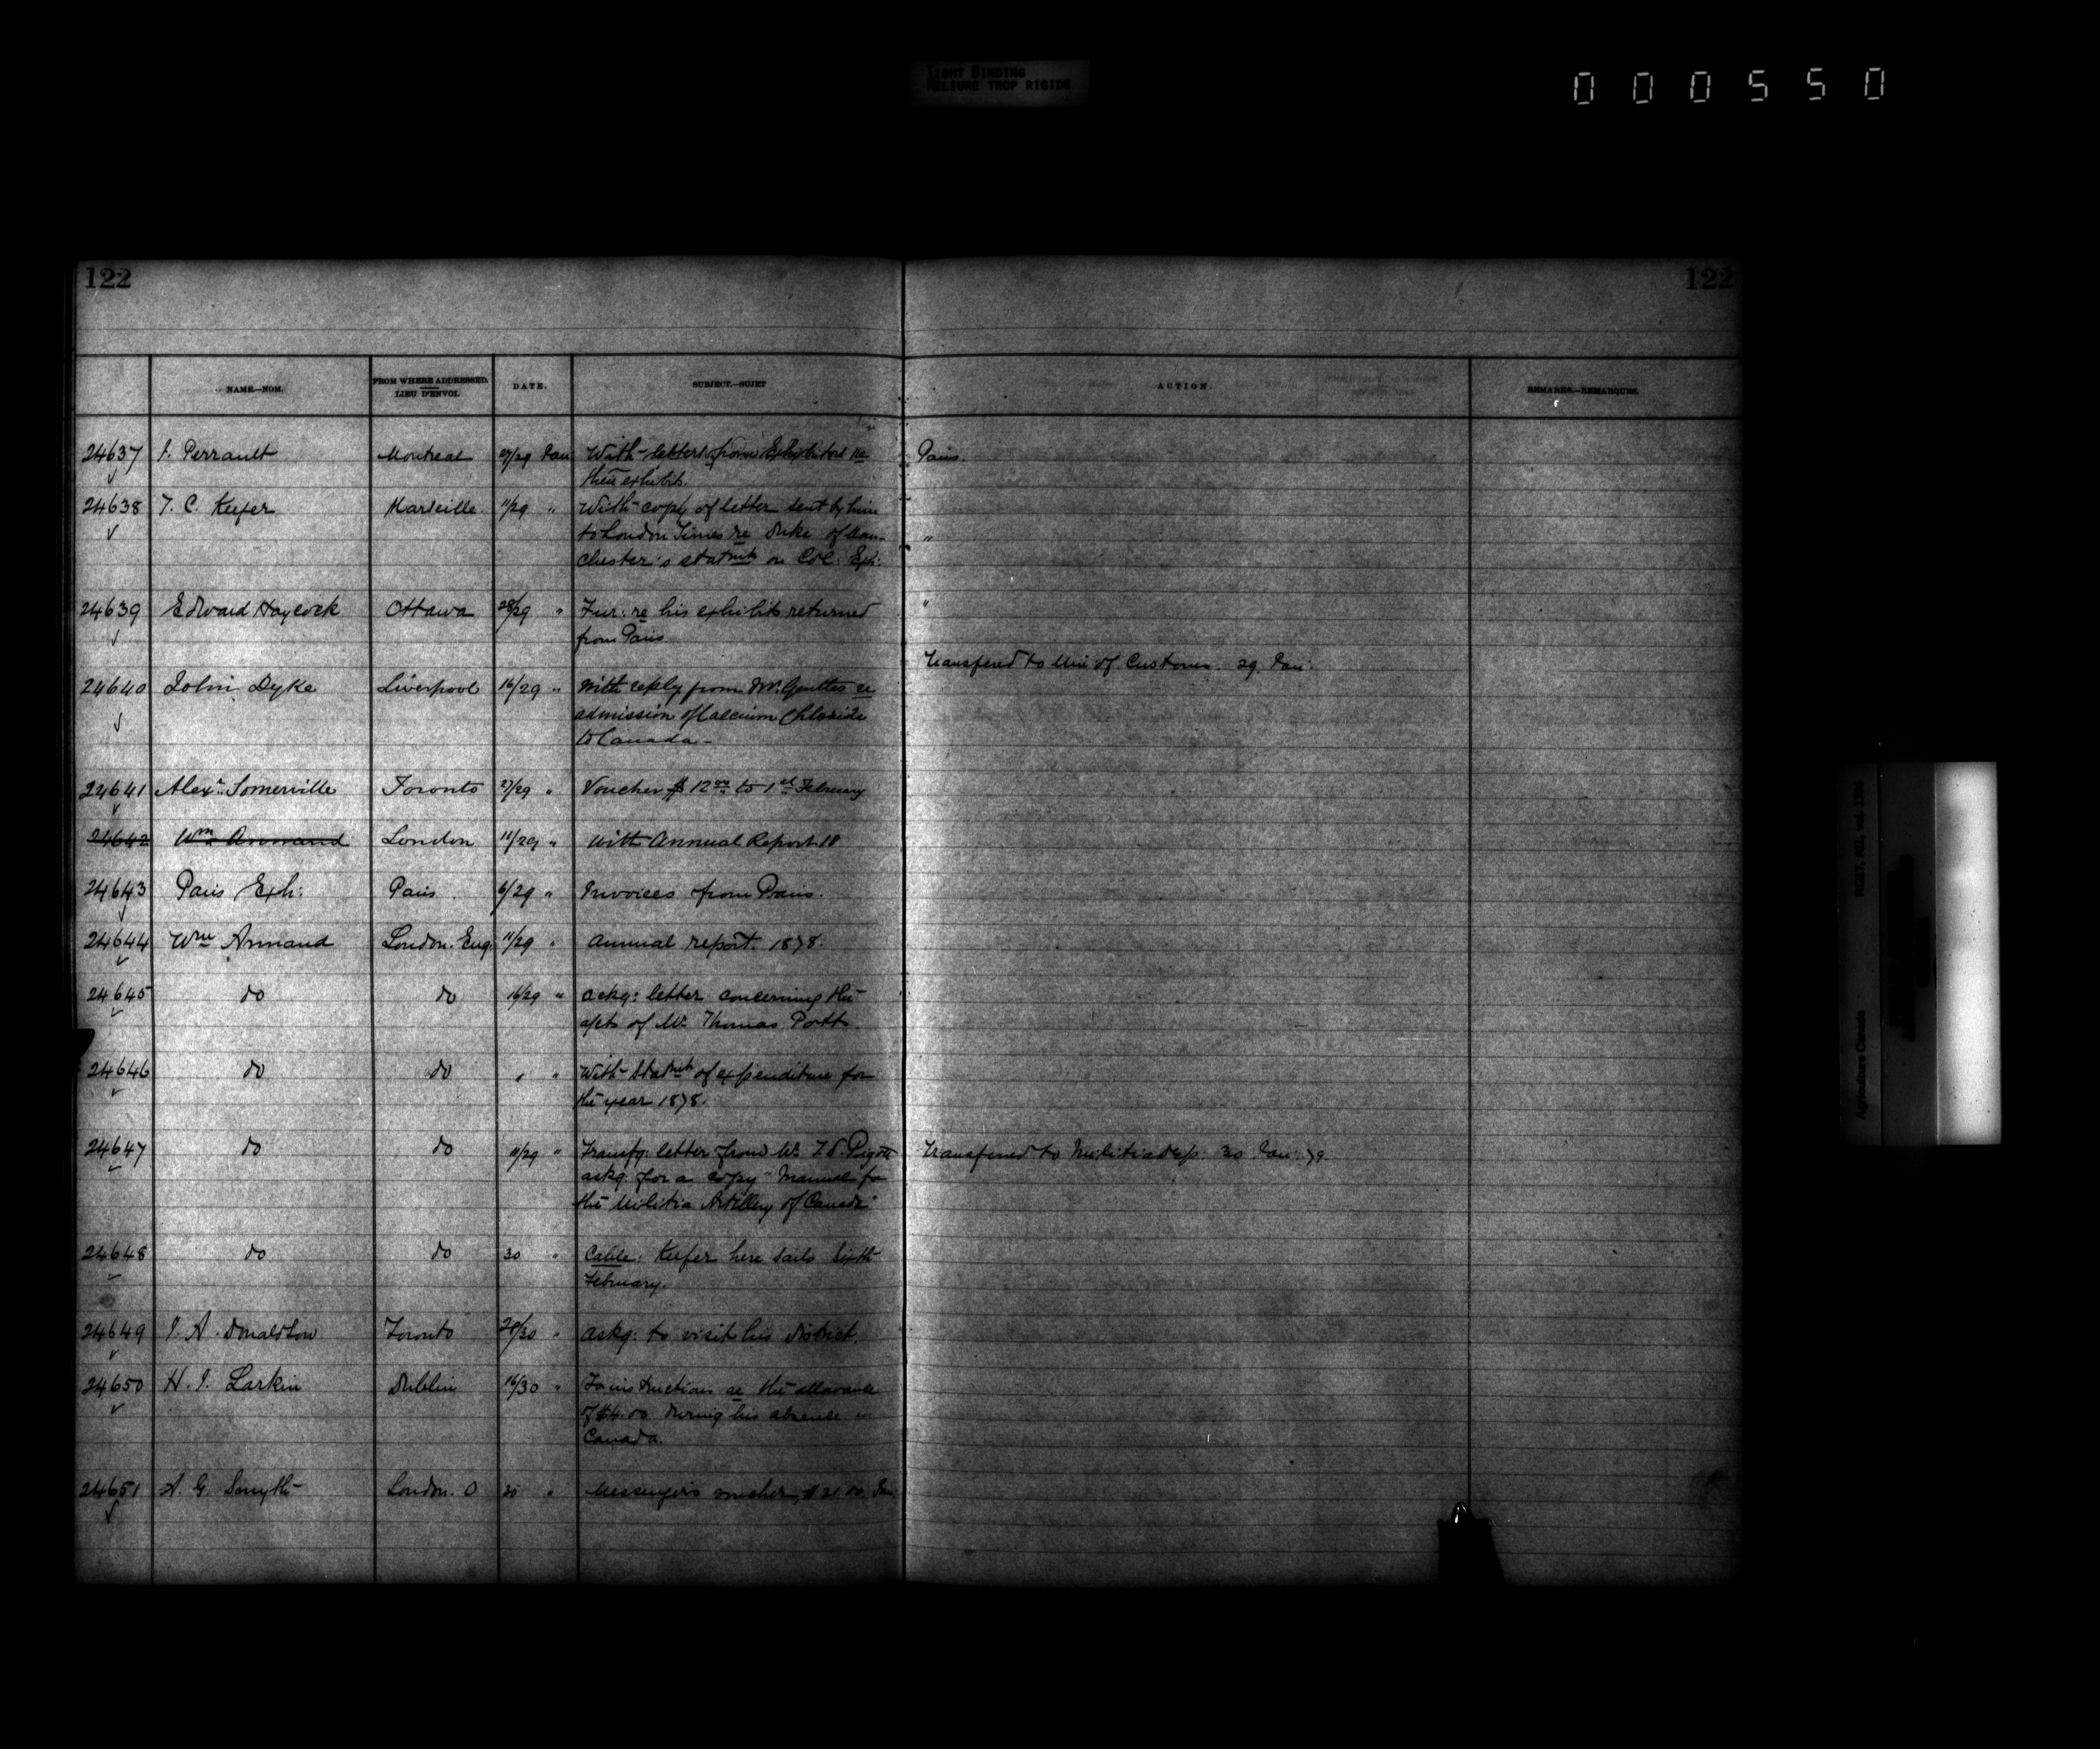 TIGHT BINDING
RELIURE TROP RIGIDE
000550
122 122
NAME.—NOM. FROM WHERE ADDRESSED. LIEU D'ENVOI. DATE. SUBJECT.—SUJET ACTION. REMARKS.—REMARQUES.
24637 J. Perrault Montreal 27/29 Jan With letters from Exhibitors re Paris.
their exhibits.
24638 T. C. Keefer Marseille 11/29 " With copy of letter sent by him
to London Times re Duke of Man- "
chester's statmt on Col: Exh:
24639 Edward Haycock Ottawa 28/29 " Fur: re his exhibits returned "
from Paris
Transfered to Min of Customs. 29. Jan:
24640 John Dyke Liverpool 16/29 " With reply from Mr. re
admission of Calcium Chloride
to Canada.-
24641 Alexr. Somerville Toronto 27/29 " Voucher $ 12 00 to 1st February
24642 Wm Annand London 11/29 " With Annual Report 18
24643 Paris Exh: Paris 6/29 " Invoices from Paris.
24644 Wm Annand London. Eng. 11/29 " Annual report. 1878.
24645 do do 16/29 " Ackg: letter concerning the
apt of Mr. Thomas Potts
24646 do do " " With Statmt of expenditure for
the year 1878.
24647 do do 11/29 " Transfg: letter from Mr. Pigott Transferred to Militia dep. 30 Jan: 79.
askg: for a copy "Manual for
the Militia Artillery of Canada"
24648 do do 30 " Cable: Keefer here sails sixth
February.
24649 J. A. Donaldson Toronto 29/30 " Askg: to visit his district.
24650 H. J. Larkin Dublin 16/30 " For instructions re the allowance
of $4.00 during his absence in
Canada.
24651 A. G. Smyth London. O 30 " Messenger's voucher, $ 21.00. Jan:
RG17, AII, vol. 1306
Agriculture Canada